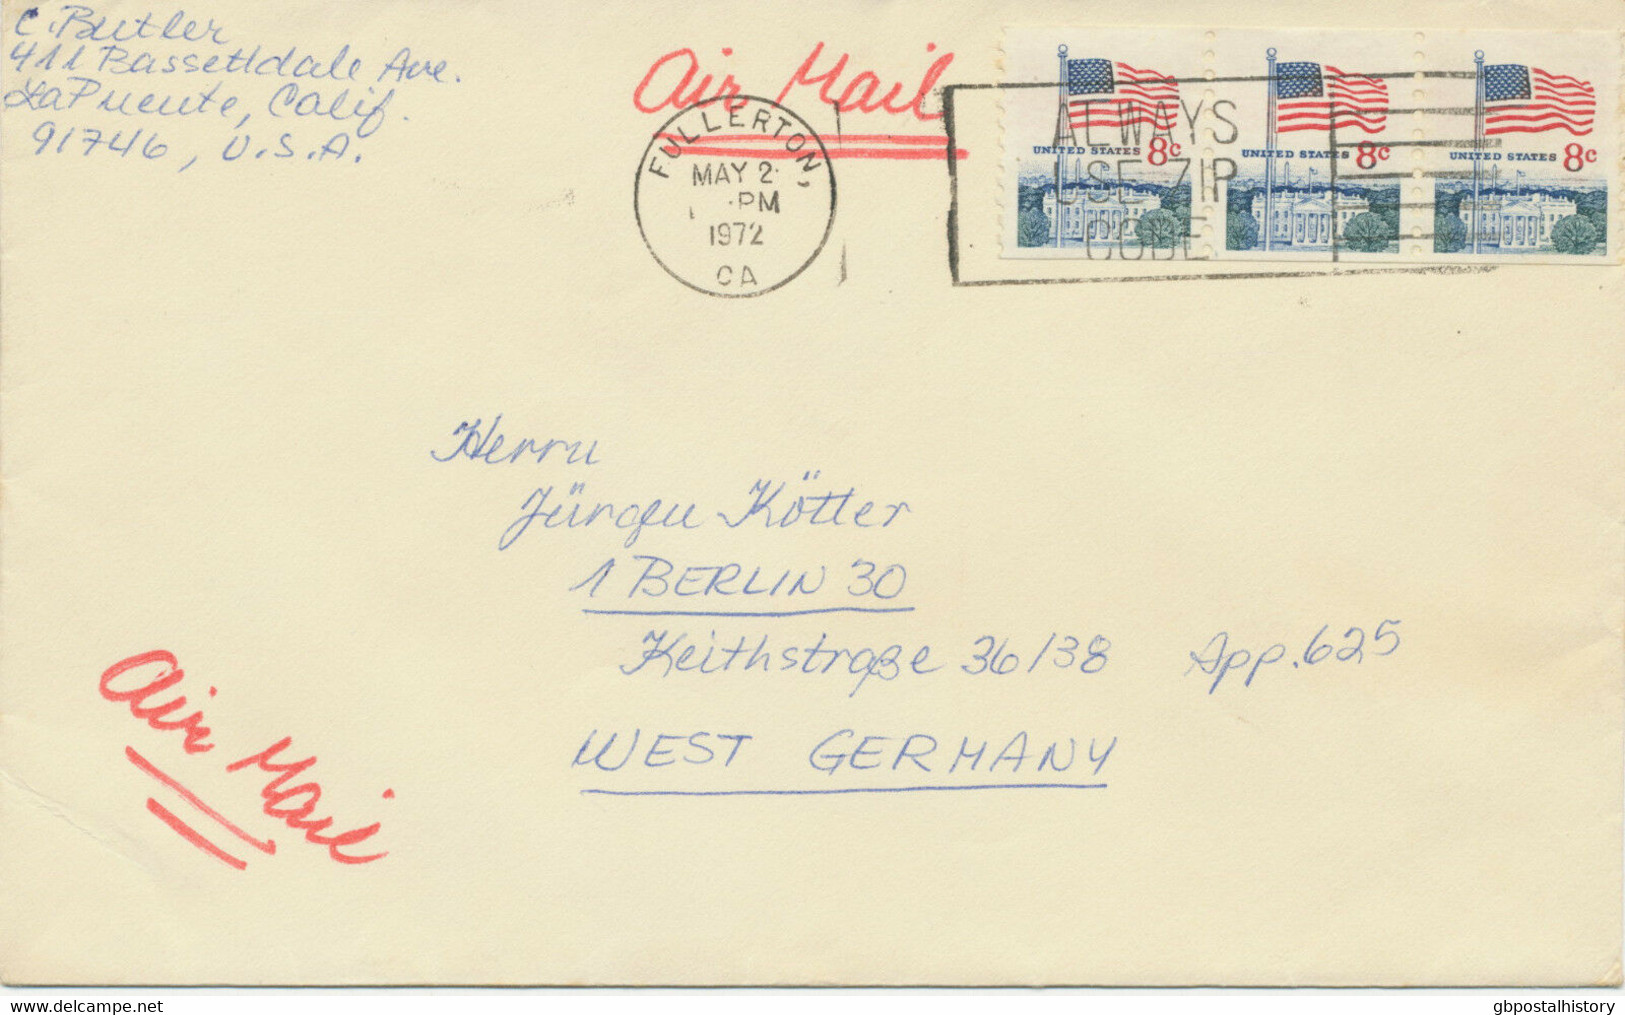 C. Butler
411 Bassettdale Ave.
La Puente, Calif.
91746, U.S.A.
Air Mail
FULLERTON,
MAY 2
PM
1972
CA
ALWAYS
USE ZIP
CODE
UNITED STATES 8c
UNITED STATES 8c
UNITED STATES 8c
Herrn
Jürgen Kötter
1 BERLIN 30
Keithstraße 36/38 App. 625
WEST GERMANY
Air Mail
www.delcampe.net
gbpostalhistory